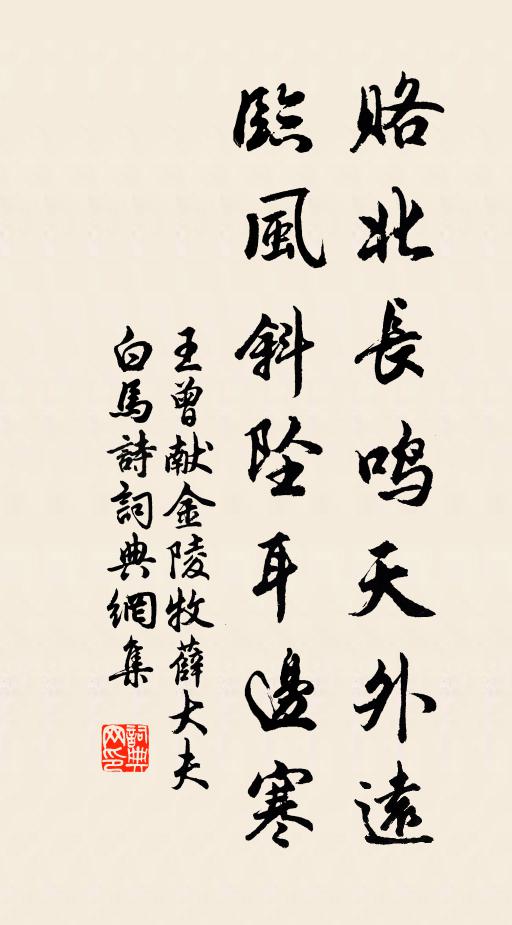 賂北長鸣天外遠
臨風斜坠耳邊寒
王曾献金陵牧薛大夫
白馬詩詞典網集
詞典
网印